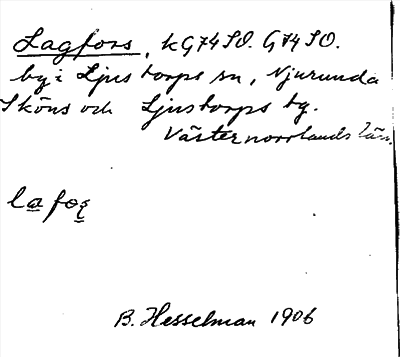 Lagfors, kG74SO. G74SO.
by i Ljustorps sn, Njurunda
Sköns och Ljustorps tg.
Västernorrlands län.
lafo
B. Hesselman 1906